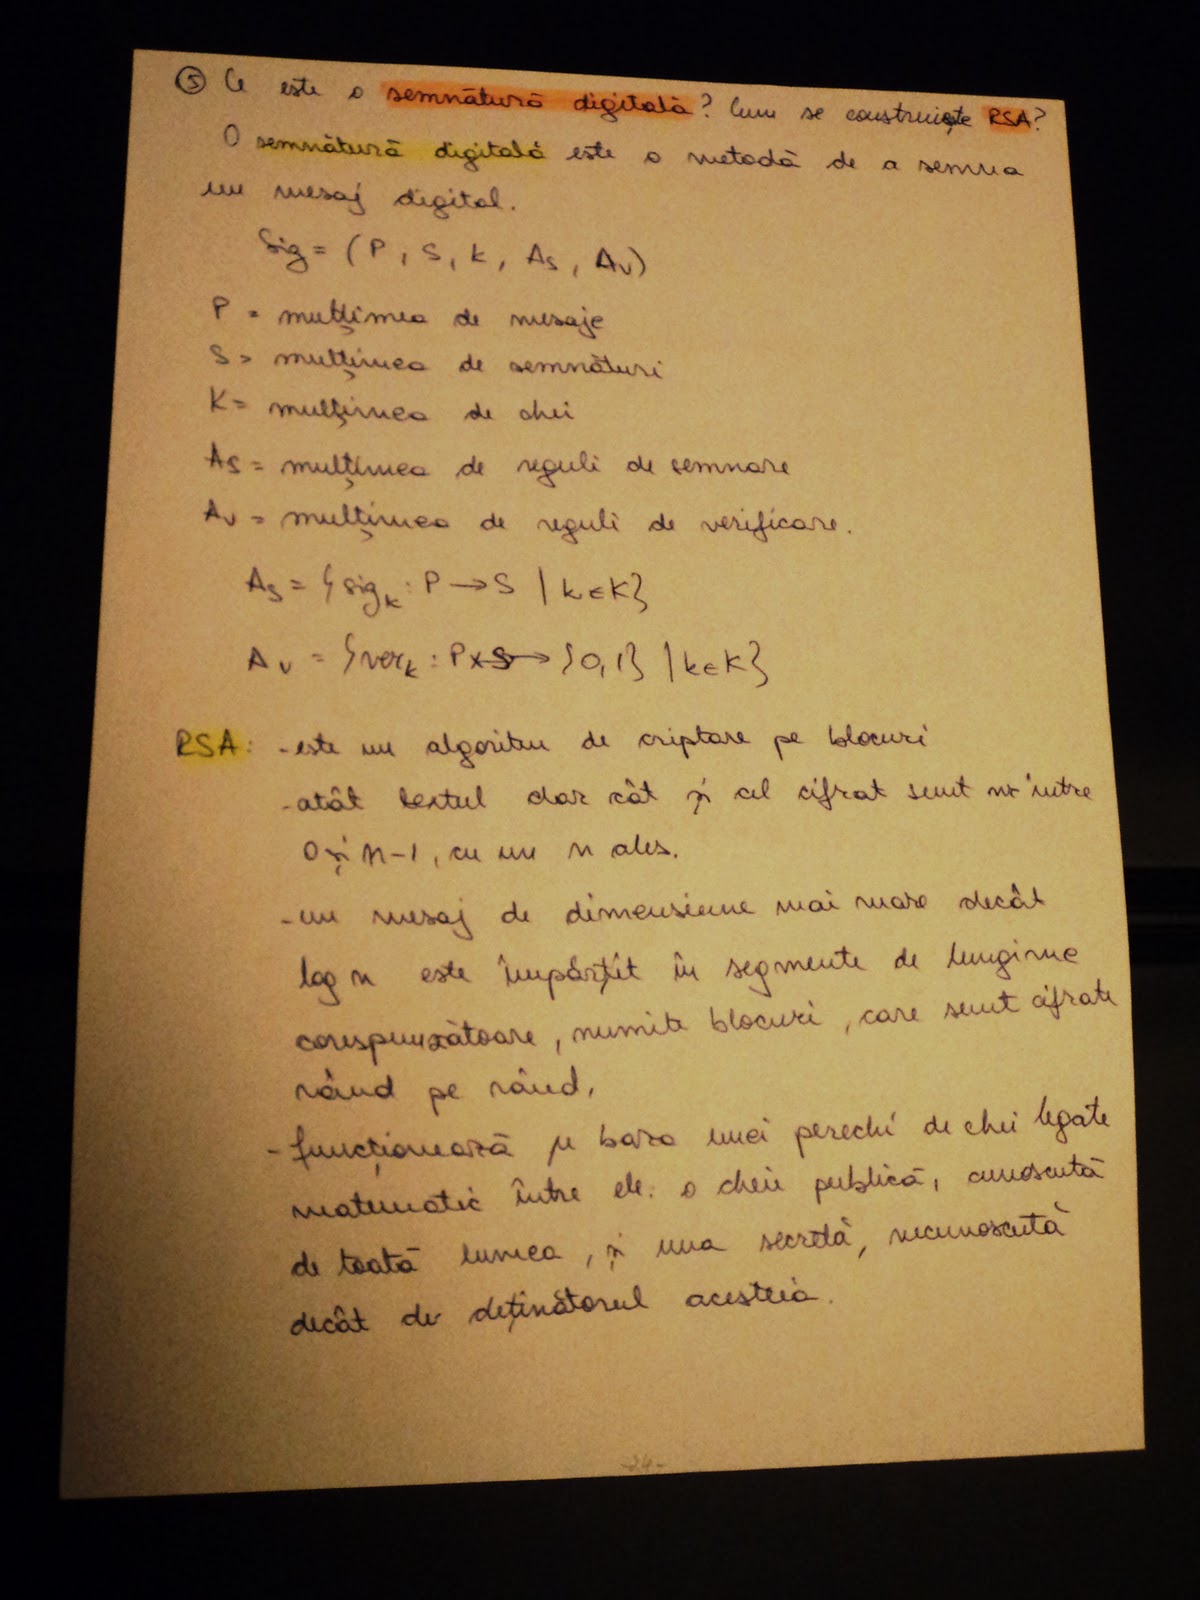 ⑤ Ce este o semnătură digitală? Cum se construiește RSA?
O semnătură digitală este o metodă de a semna
un mesaj digital.
Sig = (P, S, K, As, Av)
P = mulțimea de mesaje
S = mulțimea de semnături
K = mulțimea de chei
As = mulțimea de reguli de semnare
Av = mulțimea de reguli de verificare.
As = {sigk : P → S | k ∈ K}
Av = {verk : P×S → {0,1} | k ∈ K}
RSA: - este un algoritm de criptare pe blocuri
- atât textul clar cât și cel cifrat sunt nr între
0 și n-1, cu un n ales.
- un mesaj de dimensiune mai mare decât
log n este împărțit în segmente de lungime
corespunzătoare, numite blocuri, care sunt cifrate
rând pe rând.
- funcționează pe baza unei perechi de chei legate
matematic între ele: o cheie publică, cunoscută
de toată lumea, și una secretă, necunoscută
decât de deținătorul acesteia.
-24-